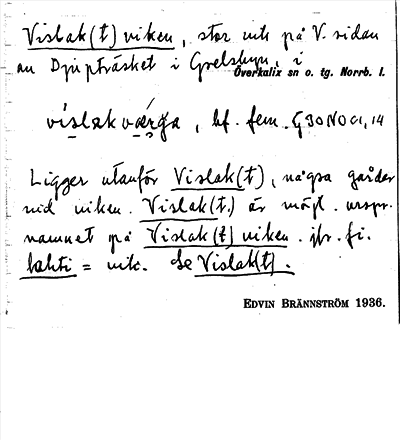 Vislak(t)viken, stor vik på V. sidan
av Djupträsket i Grelsbyn, i
Överkalix sn o. tg. Norrb. l.
vislakværga, bf. fem.
Ligger utanför Vislak(t), några gårder
vid viken. Vislak(t.) är möjl. urspr.
namnet på Vislak(t)viken. jfr. fi.
lahti = vik. Se Vislak(t).
EDVIN BRÄNNSTRÖM 1936.